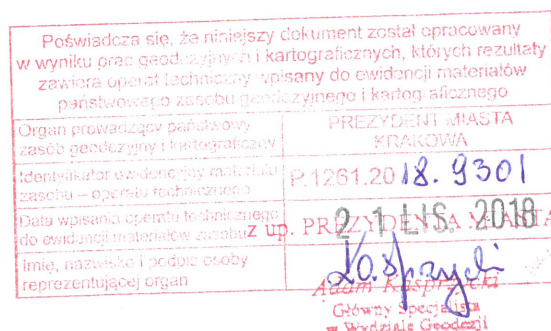 Poświadcza się, że niniejszy dokument został opracowany
w wyniku prac geodezyjnych i kartograficznych, których rezultaty
zawiera operat techniczny wpisany do ewidencji materiałów
państwowego zasobu geodezyjnego i kartograficznego
Organ prowadzący państwowy
zasób geodezyjny i kartograficzny
PREZYDENT MIASTA
KRAKOWA
Identyfikator ewidencyjny materiału
zasobu – operatu technicznego
P.1261.2018.9301
Data wpisania operatu technicznego
do ewidencji materiałów zasobu
21 LIS. 2018
z up. PREZYDENTA MIASTA
Imię, nazwisko i podpis osoby
reprezentującej organ
Adam Kasprzycki
Główny Specjalista
w Wydziale Geodezji